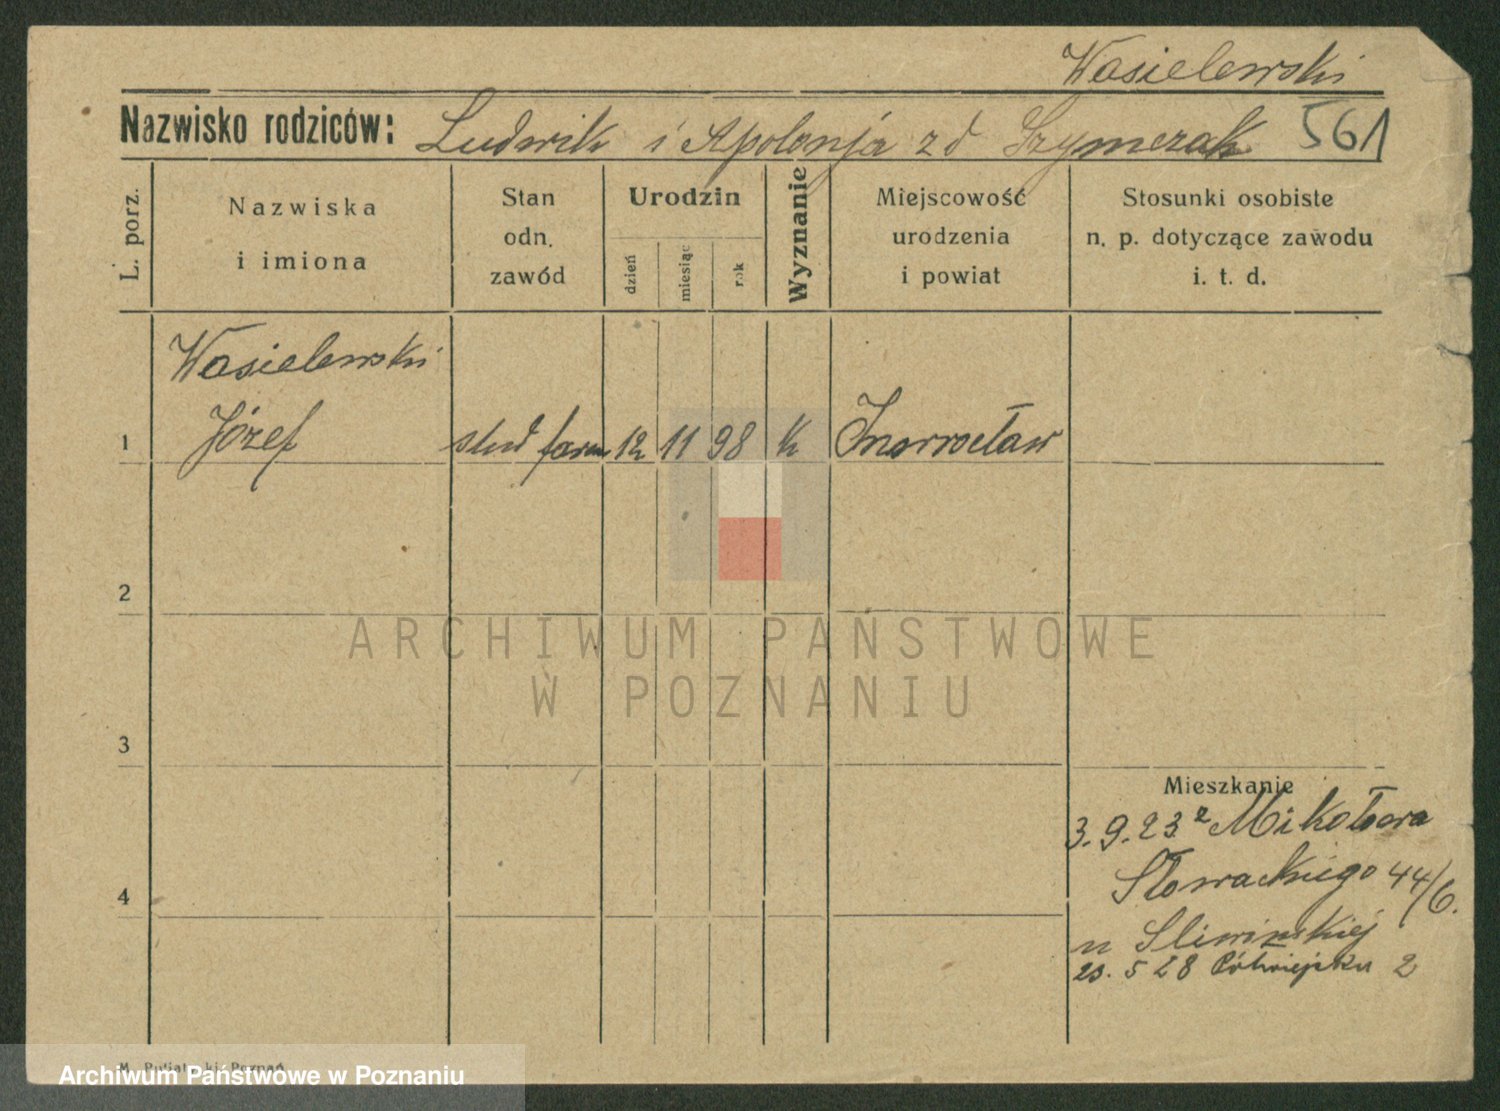 Wasielewski
Nazwisko rodziców: Ludwik i Apolonja zd Szymczak 561
L. porz.
Nazwiska
i imiona
Stan
odn.
zawód
Urodzin
dzień
miesiąc
rok
Wyznanie
Miejscowość
urodzenia
i powiat
Stosunki osobiste
n. p. dotyczące zawodu
i. t. d.
Wasielewski
1 Józef stud farm 12 11 98 k Inowrocław
2
3
4
Mieszkanie
3.9.23 z Mikołowa
Słowackiego 44/6.
u Sliwinskiej
23. 5 28 Półwiejska 2
ARCHIWUM PAŃSTWOWE
W POZNANIU
Archiwum Państwowe w Poznaniu